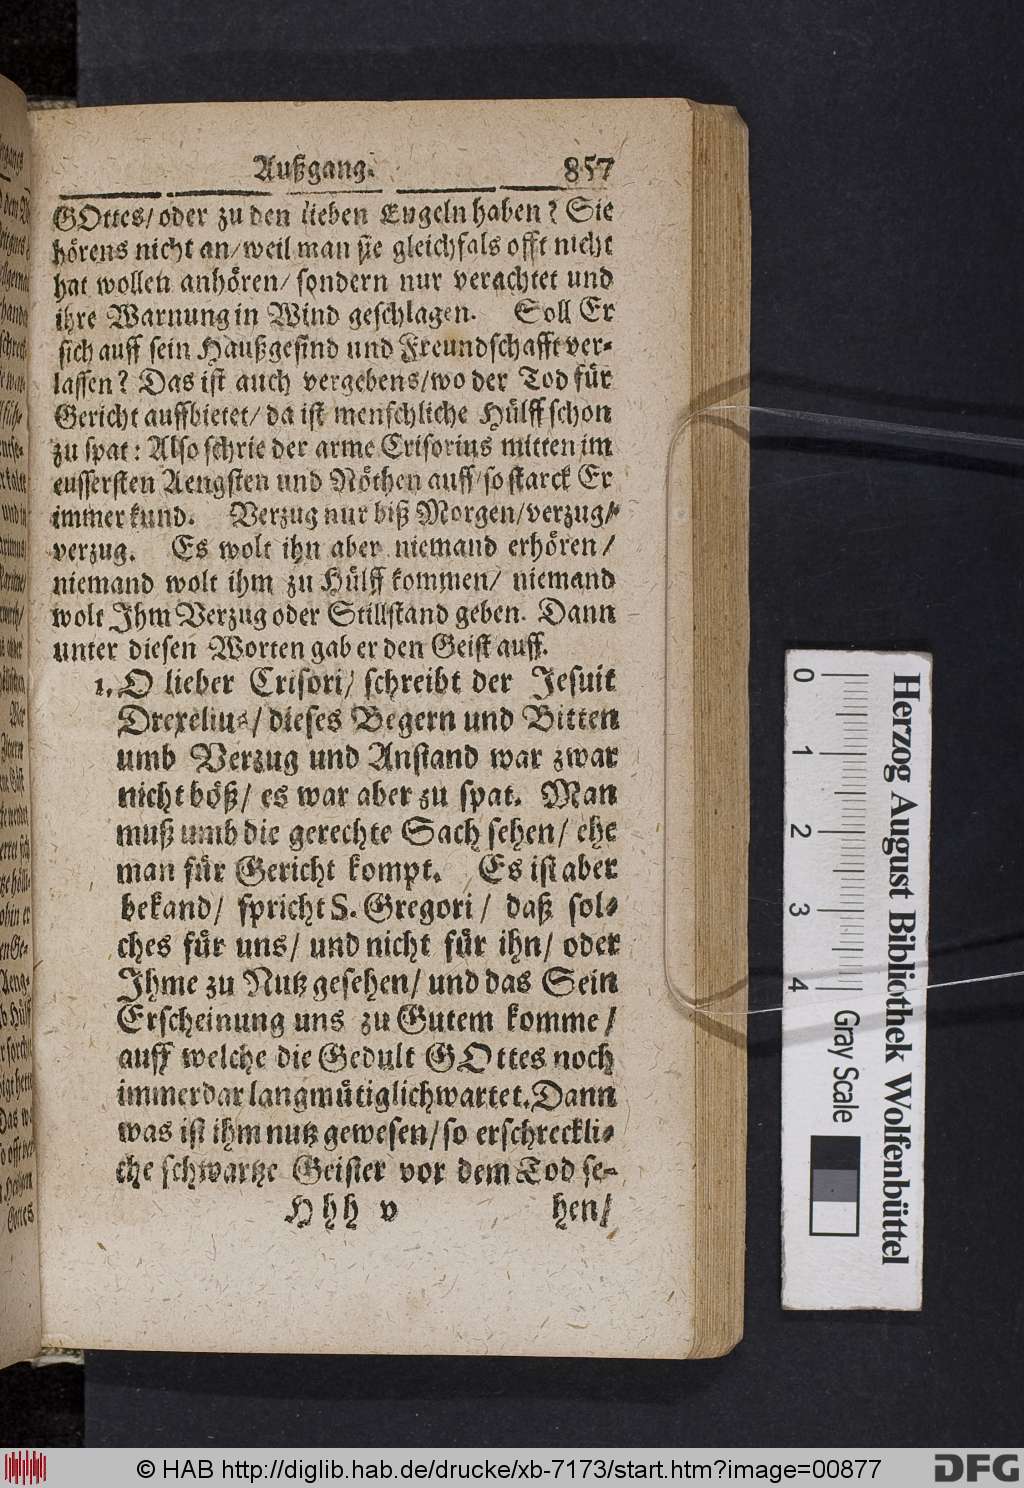 Außgang. 857
GOttes/ oder zu den lieben Engeln haben? Sie
hörens nicht an/ weil man sie gleichfals offt nicht
hat wollen anhören/ sondern nur verachtet und
ihre Warnung in Wind geschlagen. Soll Er
sich auff sein Haußgesind und Freundschafft ver-
lassen? Das ist auch vergebens/ wo der Tod für
Gericht auffbietet/ da ist menschliche Hülff schon
zu spat: Also schrie der arme Crisorius mitten im
eussersten Aengsten und Nöthen auff/ so starck Er
immer kund. Verzug nur biß Morgen/ verzug/
verzug. Es wolt ihn aber niemand erhören/
niemand wolt ihm zu Hülff kommen/ niemand
wolt Ihm Verzug oder Stillstand geben. Dann
unter diesen Worten gab er den Geist auff.
1. O lieber Crisori/ schreibt der Jesuit
Drexelius/ dieses Begern und Bitten
umb Verzug und Anstand war zwar
nicht böß/ es war aber zu spat. Man
muß umb die gerechte Sach sehen/ ehe
man für Gericht kompt. Es ist aber
bekand/ spricht S. Gregori/ daß sol-
ches für uns/ und nicht für ihn/ oder
Ihme zu Nutz gesehen/ und das Sein
Erscheinung uns zu Gutem komme/
auff welche die Gedult GOttes noch
immerdar langmütiglich wartet. Dann
was ist ihm nutz gewesen/ so erschreckli-
che schwartze Geister vor dem Tod se-
Hhh v hen/
0 1 2 3 4
Gray Scale
Herzog August Bibliothek Wolfenbüttel
© HAB http://diglib.hab.de/drucke/xb-7173/start.htm?image=00877
DFG